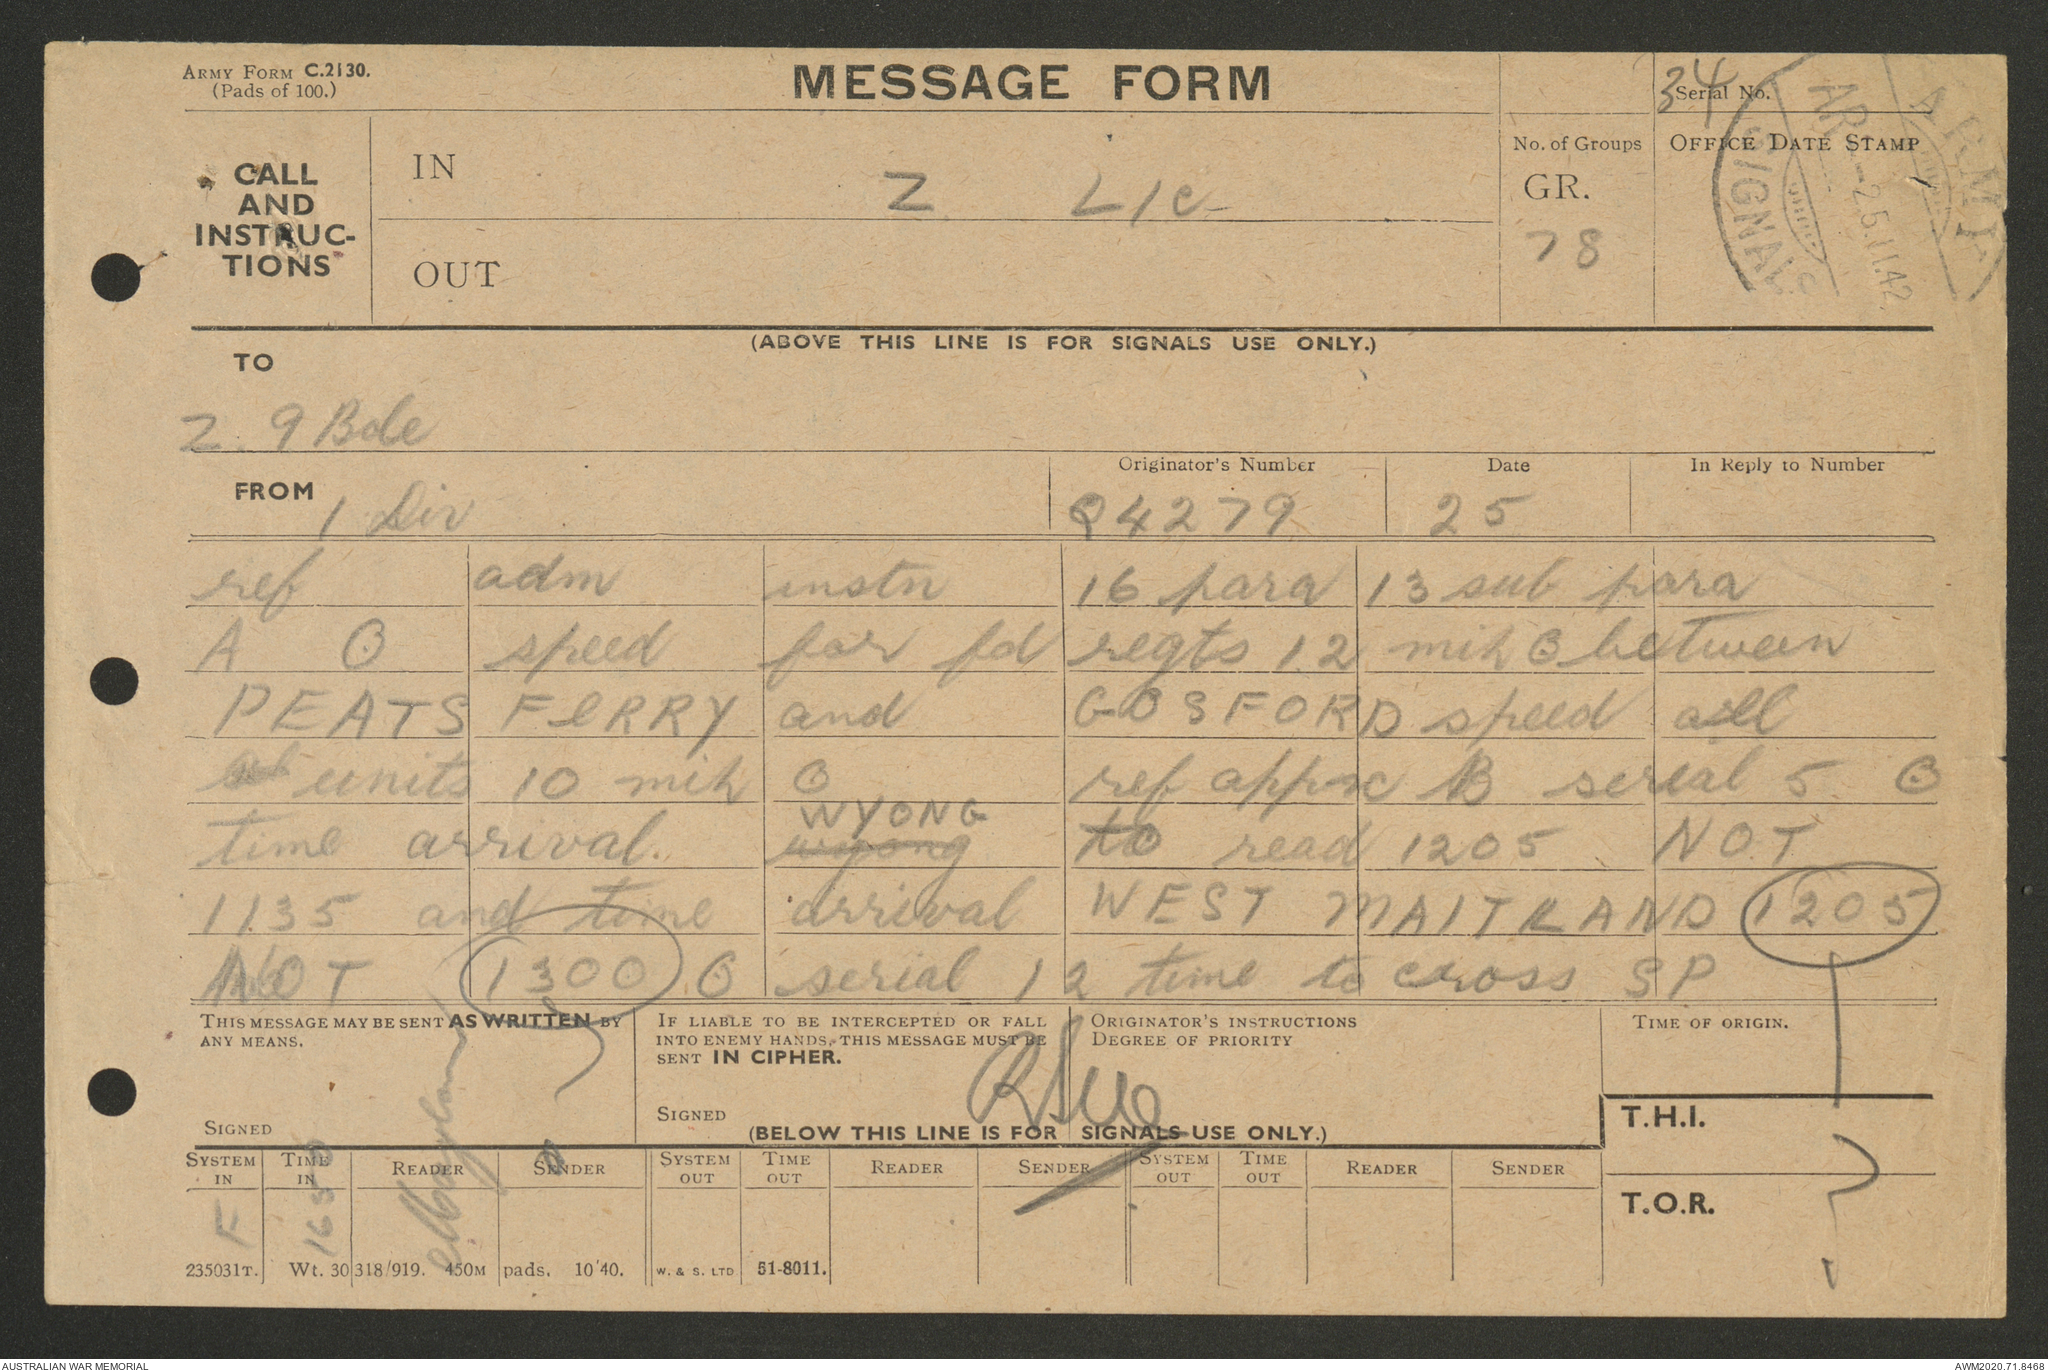 ARMY FORM C.2130.
(Pads of 100.)
MESSAGE FORM
34
Serial No.
CALL
AND
INSTRUC-
TIONS
IN
Z L/C
OUT
No. of Groups
GR.
78
OFFICE DATE STAMP
ARMY
25.11.42
SIGNALS
(ABOVE THIS LINE IS FOR SIGNALS USE ONLY.)
TO
Z. 9 Bde
FROM
1 Div
Originator's Number
Q4279
Date
25
In Reply to Number
ref adm instn 16 para 13 sub para
A O speed for fd regts 12 mih O between
PEATS FERRY and GOSFORD speed all
units 10 mih O ref appx B serial 5 O
time arrival WYONG
wyong to read 1205 NOT
1135 and time arrival WEST MAITLAND 1205
NOT 1300 O serial 12 time to cross SP
THIS MESSAGE MAY BE SENT AS WRITTEN BY
ANY MEANS.
SIGNED
IF LIABLE TO BE INTERCEPTED OR FALL
INTO ENEMY HANDS, THIS MESSAGE MUST BE
SENT IN CIPHER.
SIGNED
ORIGINATOR'S INSTRUCTIONS
DEGREE OF PRIORITY
TIME OF ORIGIN.
?
(BELOW THIS LINE IS FOR SIGNALS USE ONLY.)
T.H.I.
T.O.R.
SYSTEM IN
TIME IN
READER
SENDER
SYSTEM OUT
TIME OUT
READER
SENDER
SYSTEM OUT
TIME OUT
READER
SENDER
F
235031T. Wt. 30318/919. 450M pads. 10'40. W. & S. LTD 51-8011.
AUSTRALIAN WAR MEMORIAL
AWM2020.71.8468